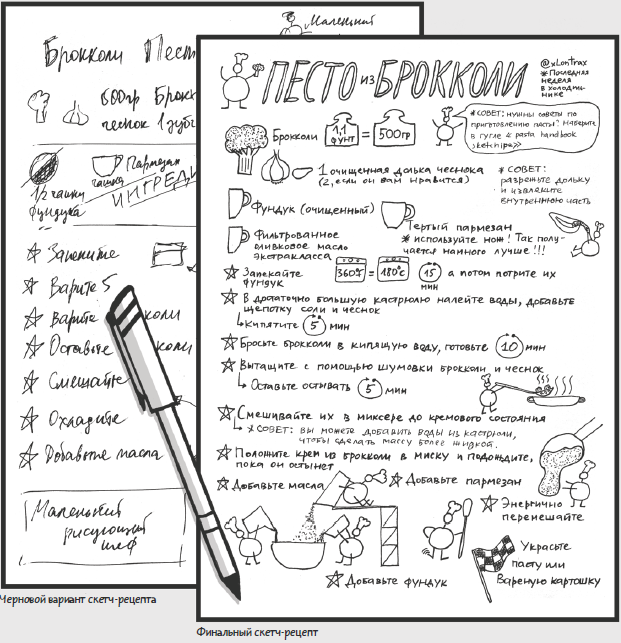 Маленький
Брокколи Пест
600гр Брокк
чеснок 1 зубч
Пармезан
чашка
1/2 чашки
фундука
ИНГРЕДИ
Запеките
Варите 5
Варите коли
Оставьте коли
Смешайте
Охладите
Добавьте масла
Маленький
рисующий
шеф
Черновой вариант скетч-рецепта
ПЕСТО ИЗ БРОККОЛИ
@xLontrax
*Последняя
неделя
в холодиль-
нике
Брокколи 1,1 фунт = 500гр
*СОВЕТ: нужны советы по
приготовлению пасты? Наберите
в гугле «pasta handbook
sketchnipa»
1 очищенная долька чеснока
(2, если он вам нравится)
*СОВЕТ:
разрежьте дольку
и извлеките
внутреннюю часть
Фундук (очищенный)
Тертый пармезан
*используйте нож! Так полу-
чается намного лучше!!!
Фильтрованное
оливковое масло
экстракласса
Запекайте фундук 360° = 180°C 15 мин а потом потрите их
В достаточно большую кастрюлю налейте воды, добавьте
щепотку соли и чеснок
Кипятите 5 мин
Бросьте брокколи в кипящую воду, готовьте 10 мин
Вытащите с помощью шумовки брокколи и чеснок
Оставьте остывать 5 мин
Смешивайте их в миксере до кремового состояния
*СОВЕТ: вы можете добавить воды из кастрюли,
чтобы сделать массу более жидкой.
Положите крем из брокколи в миску и подождите,
пока он остынет
Добавьте масла
Добавьте пармезан
Энергично
перемешайте
Украсьте
пасту или
Вареную картошку
Добавьте фундук
Финальный скетч-рецепт